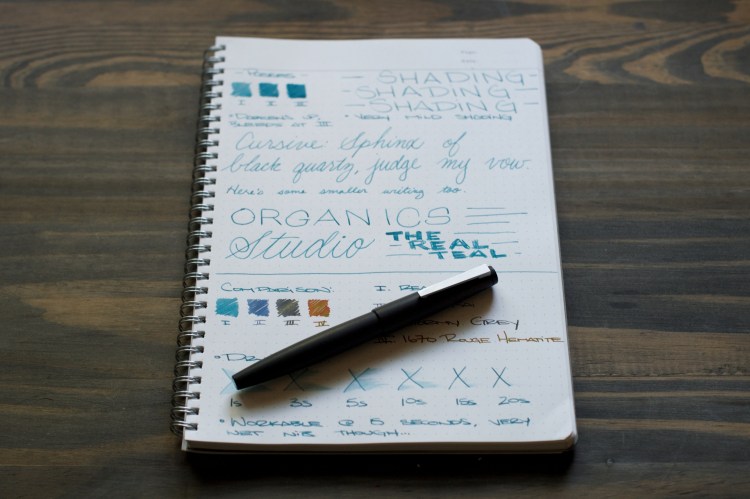 - PASSES -
I II III
- SHADING -
- SHADING -
- SHADING -
• VERY MILD SHADING
Cursive: Sphinx of
black quartz, judge my vow.
Here's some smaller writing too.
ORGANICS
Studio
THE
REAL
TEAL
COMPARISON:
I II III IV
I.
GREY
IV. 1670 ROUGE HEMATITE
X X X X X X
1s 3s 5s 10s 15s 20s
• WORKABLE @ 5 SECONDS, VERY
WET NIB THOUGH...